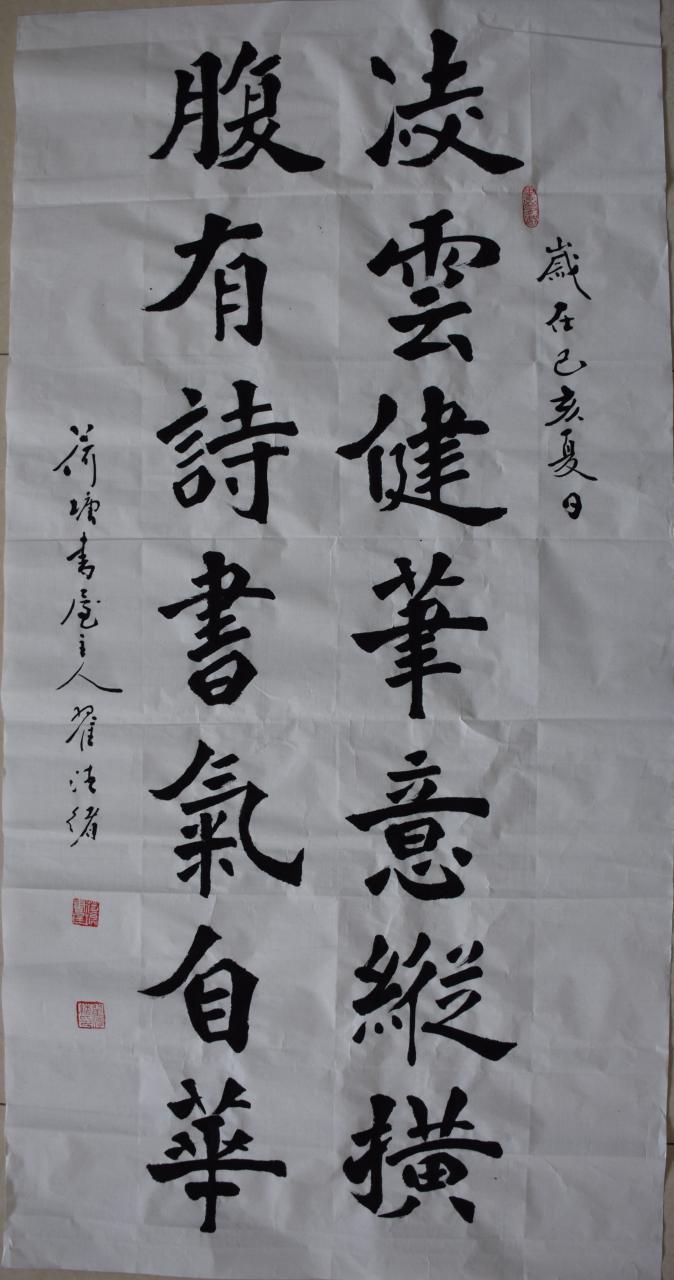 歲在己亥夏日
凌雲健筆意縱橫
腹有詩書氣自華
荷塘書屋主人翟